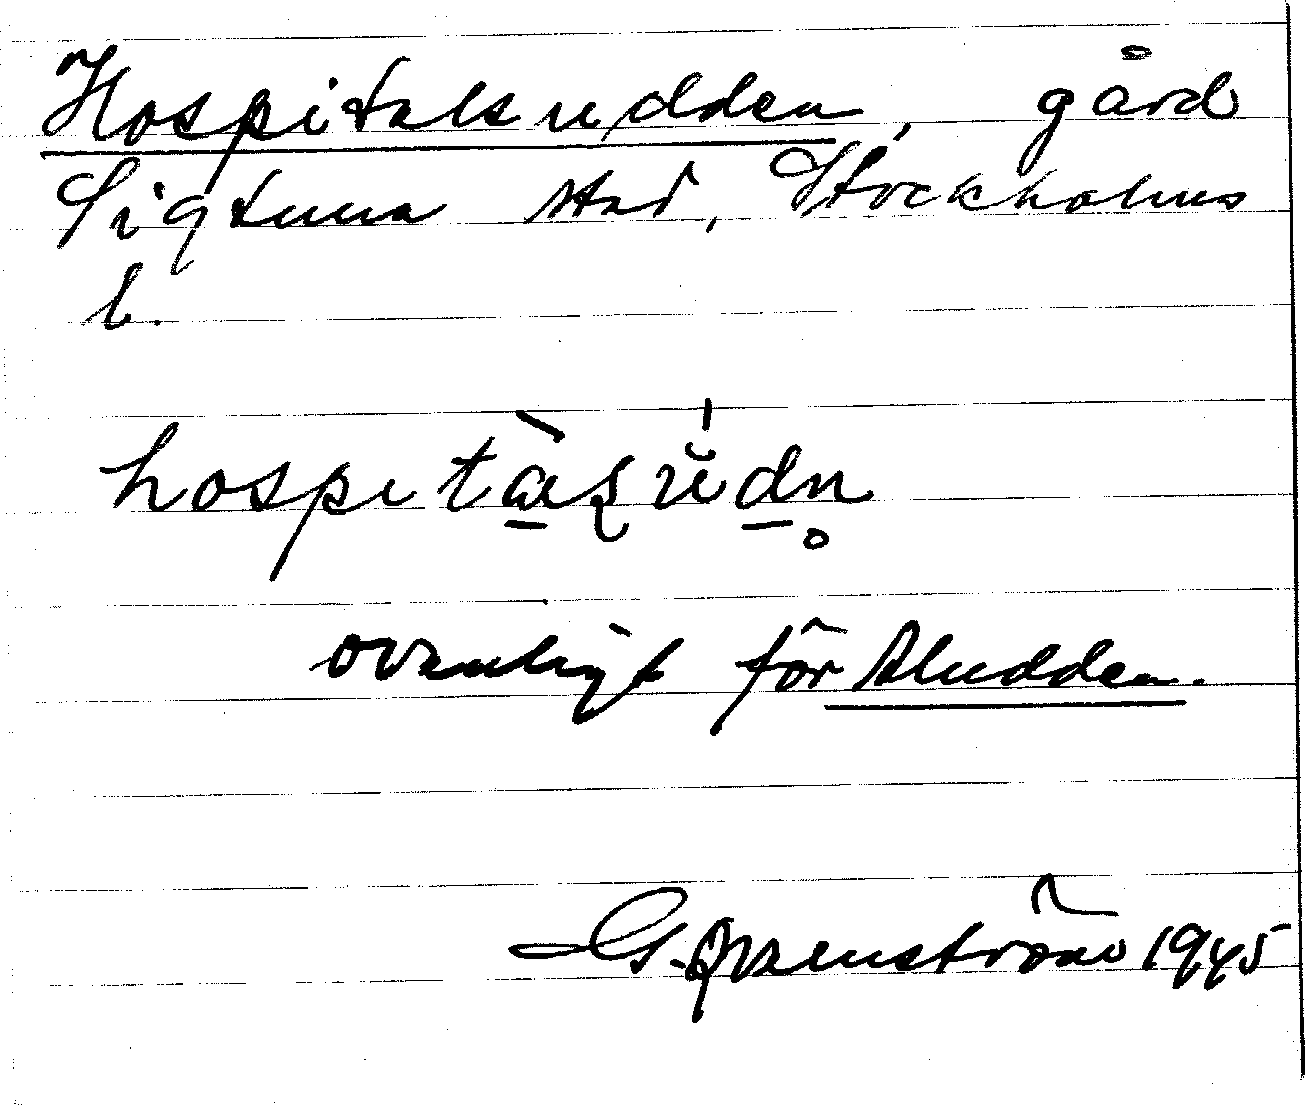 Hospitalsudden, gård
Sigtuna stad, Stockholms
l.
hospitàʂu̍dn̥
ovanligt för Aludden.
G. Franzén 1945